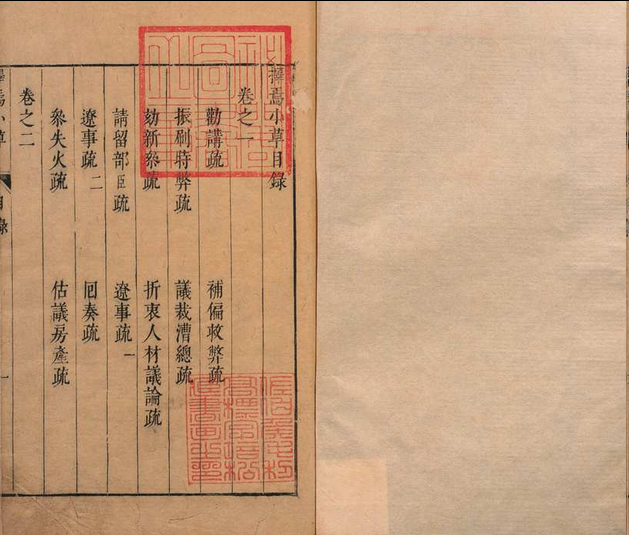 擇焉小草目錄
卷之一
勸講疏 補偏救弊疏
振刷時弊疏 議裁漕總疏
劾新叅疏 折衷人材議論疏
請留部臣疏 遼事疏一
遼事疏二 囘奏疏
叅失火疏 估議房產疏
卷之二
擇焉小草 目錄 一